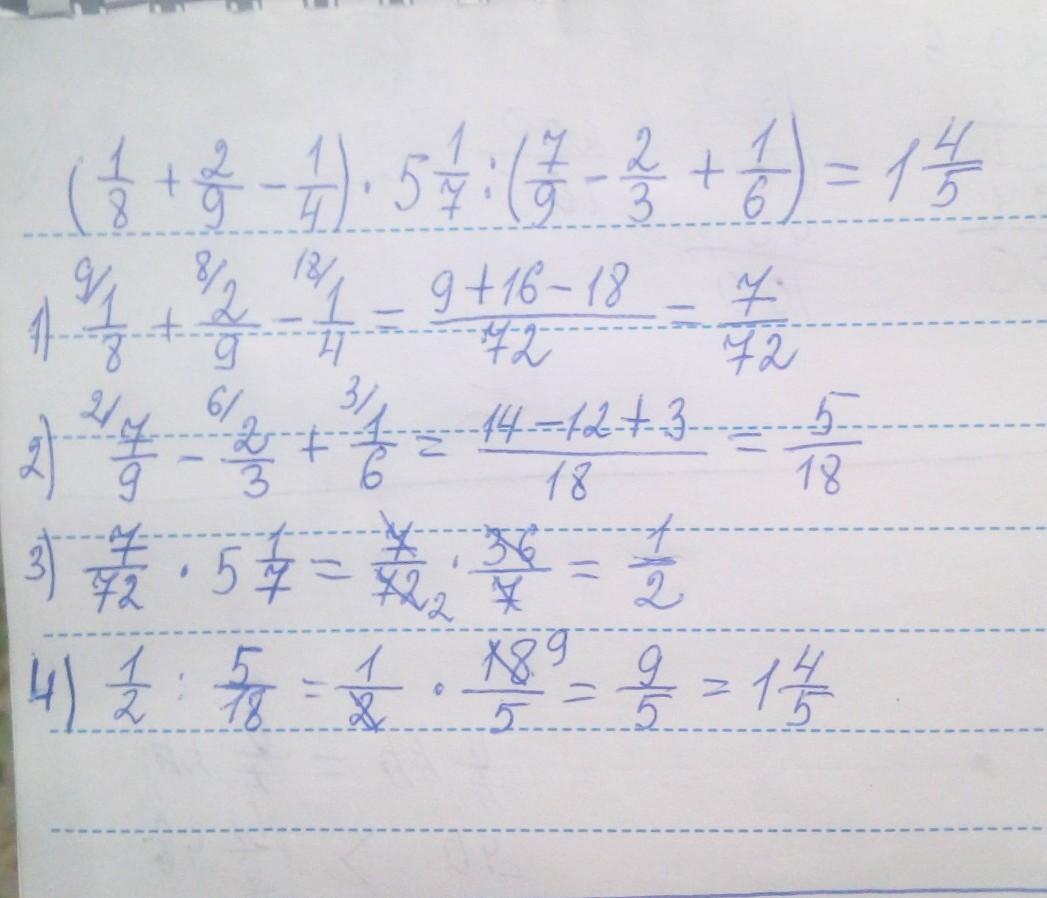 (1/8 + 2/9 - 1/4) · 5 1/7 : (7/9 - 2/3 + 1/6) = 1 4/5
1) 9/ 1/8 + 8/ 2/9 - 18/ 1/4 = (9+16-18)/72 = 7/72
2) 2/ 7/9 - 6/ 2/3 + 3/ 1/6 = (14-12+3)/18 = 5/18
3) 7/72 · 5 1/7 = 7/72 2 · 36/7 = 1/2
4) 1/2 : 5/18 = 1/2 · 18 9/5 = 9/5 = 1 4/5